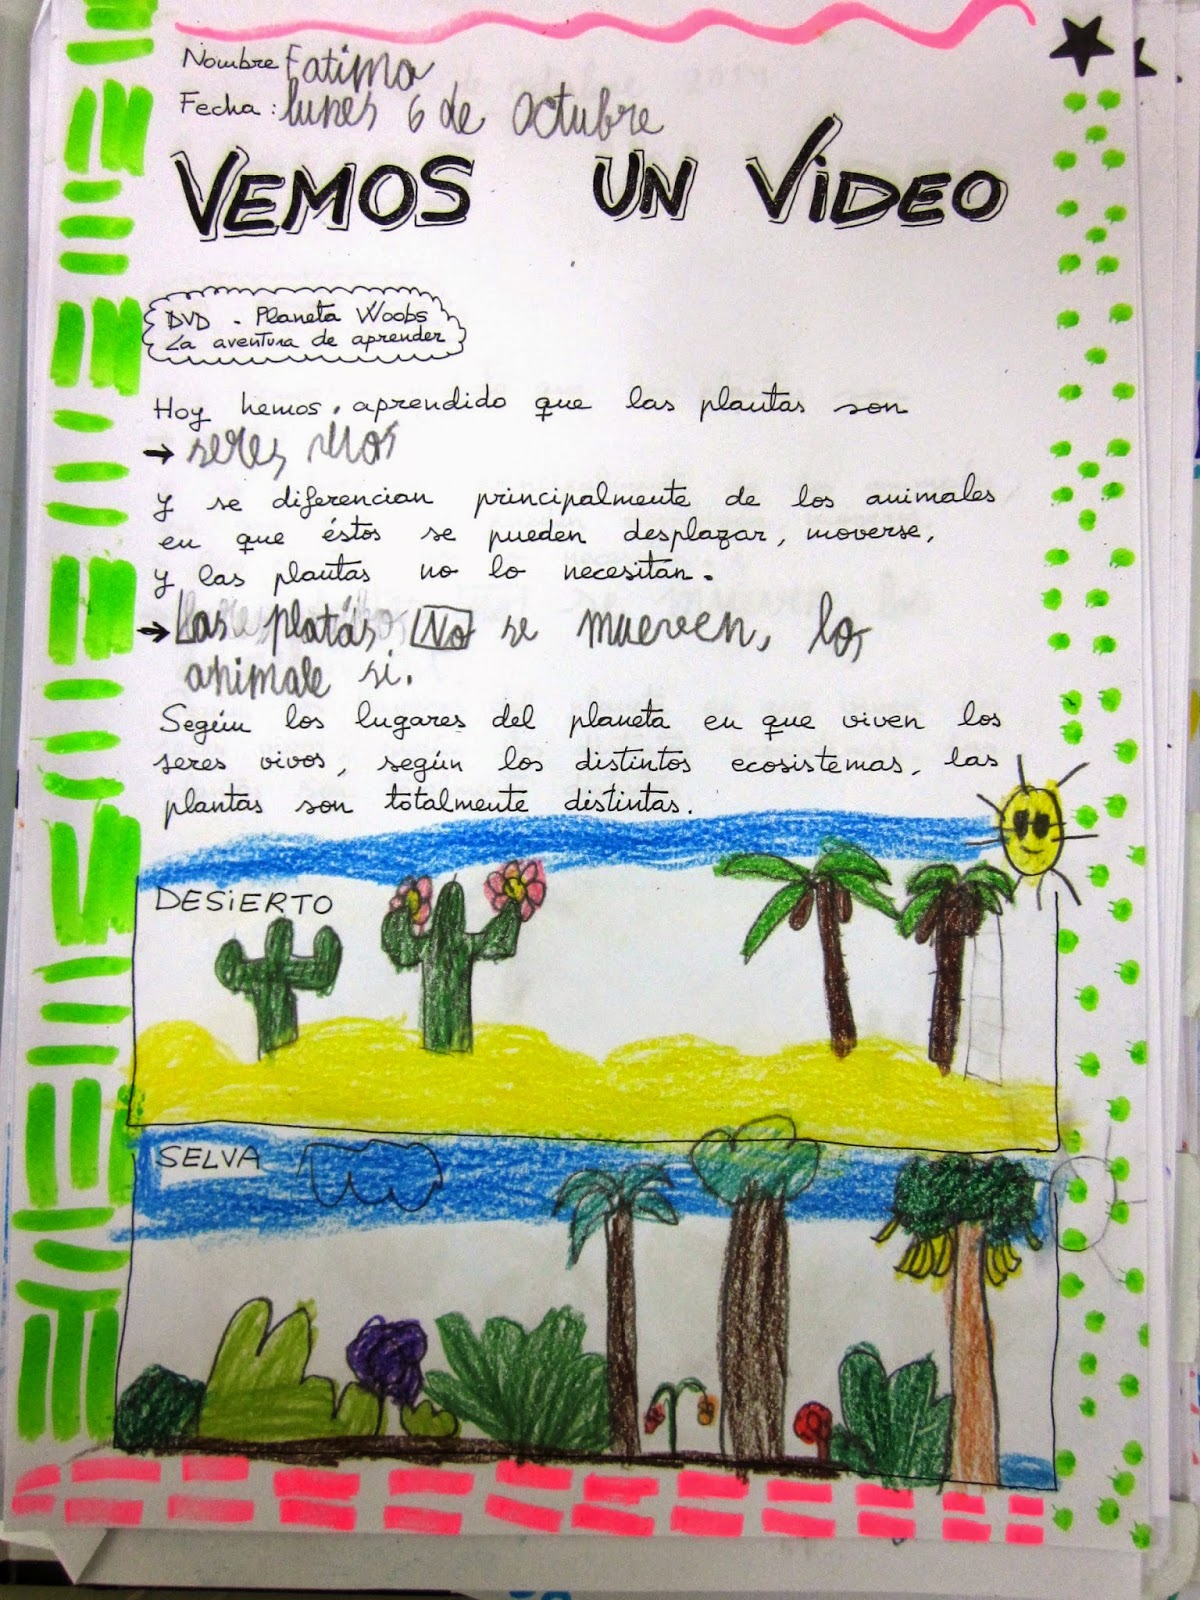 Nombre Fatima
Fecha: lunes 6 de Octubre
VEMOS UN VIDEO
DVD - Planeta Woobs
La aventura de aprender
Hoy hemos aprendido que las plantas son
→ seres vivos
Y se diferencian principalmente de los animales
en que éstos se pueden desplazar, moverse,
y las plantas no lo necesitan.
→ Las platás No se mueven, los
animale si.
Según los lugares del planeta en que viven los
seres vivos, según los distintos ecosistemas, las
plantas son totalmente distintas.
DESiERTO
SELVA